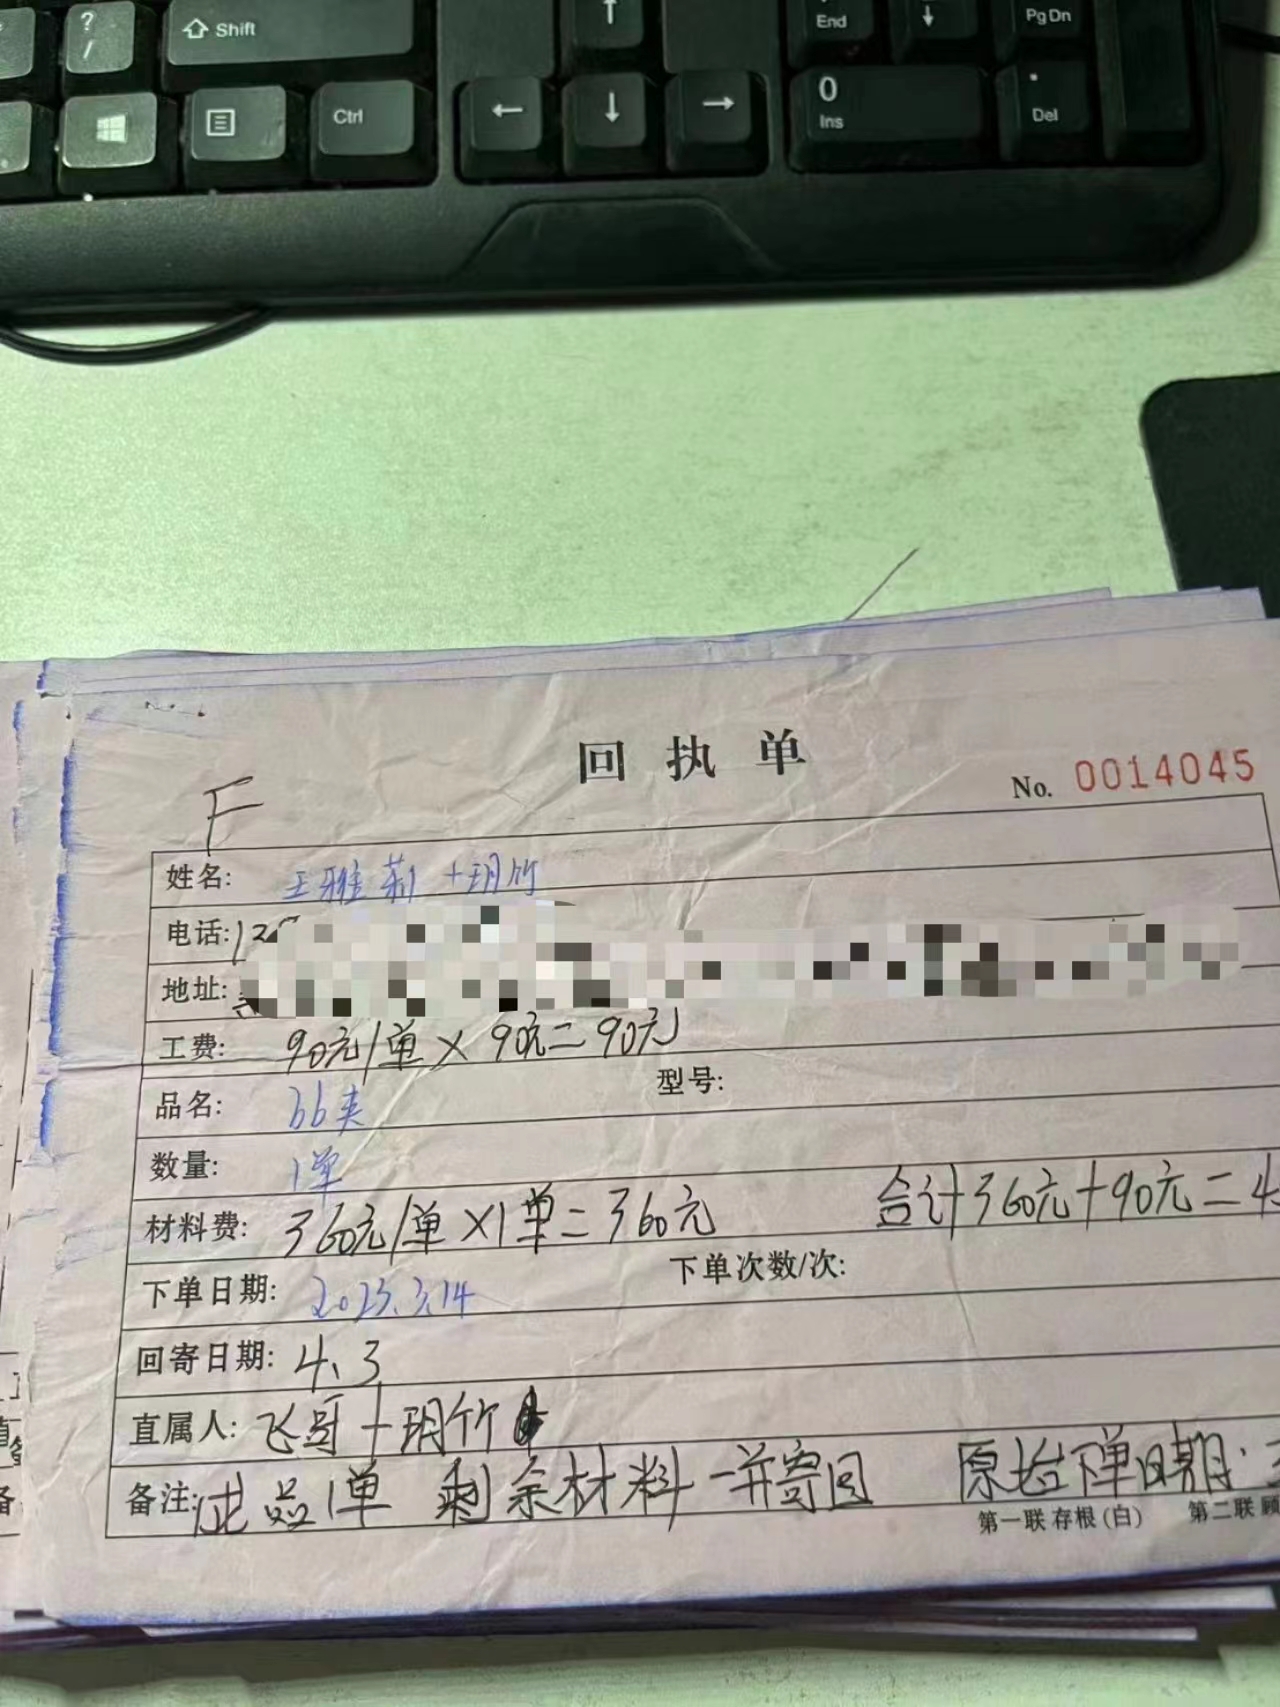 ? /
Shift
↑
End
↓
Pg Dn
Ctrl
←
↓
→
0
Ins
.
Del
回执单
No. 0014045
F
姓名: 王雅莉+玥竹
电话:
地址:
工费: 90元/单×90元=90元
型号:
品名: bb夹
数量: 1单
材料费: 360元/单×1单=360元 合计360元+90元=4
下单日期: 2023.3.14
下单次数/次:
回寄日期: 4.3
直属人: 飞哥+玥竹
备注: 成品1单 剩余材料一并寄回 原始下单日期:
第一联 存根(白) 第二联 顾